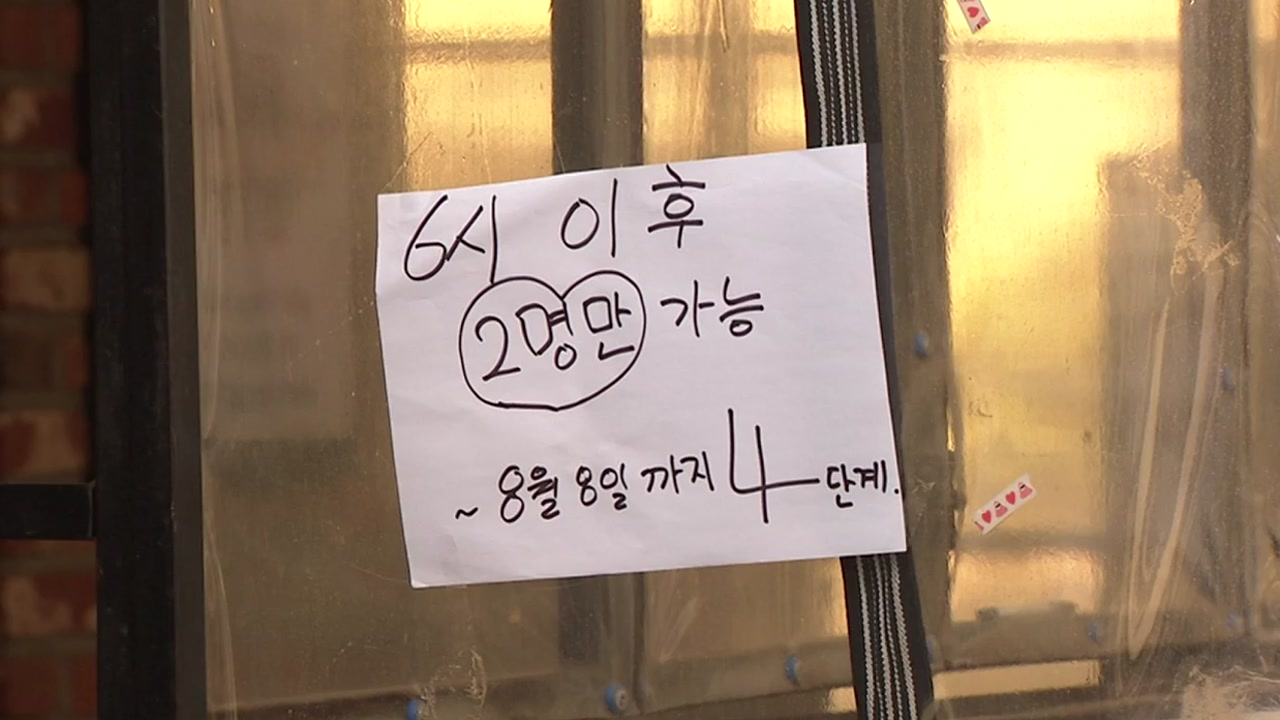 6시 이후
2명만 가능
~ 8월 8일 까지 4단계.